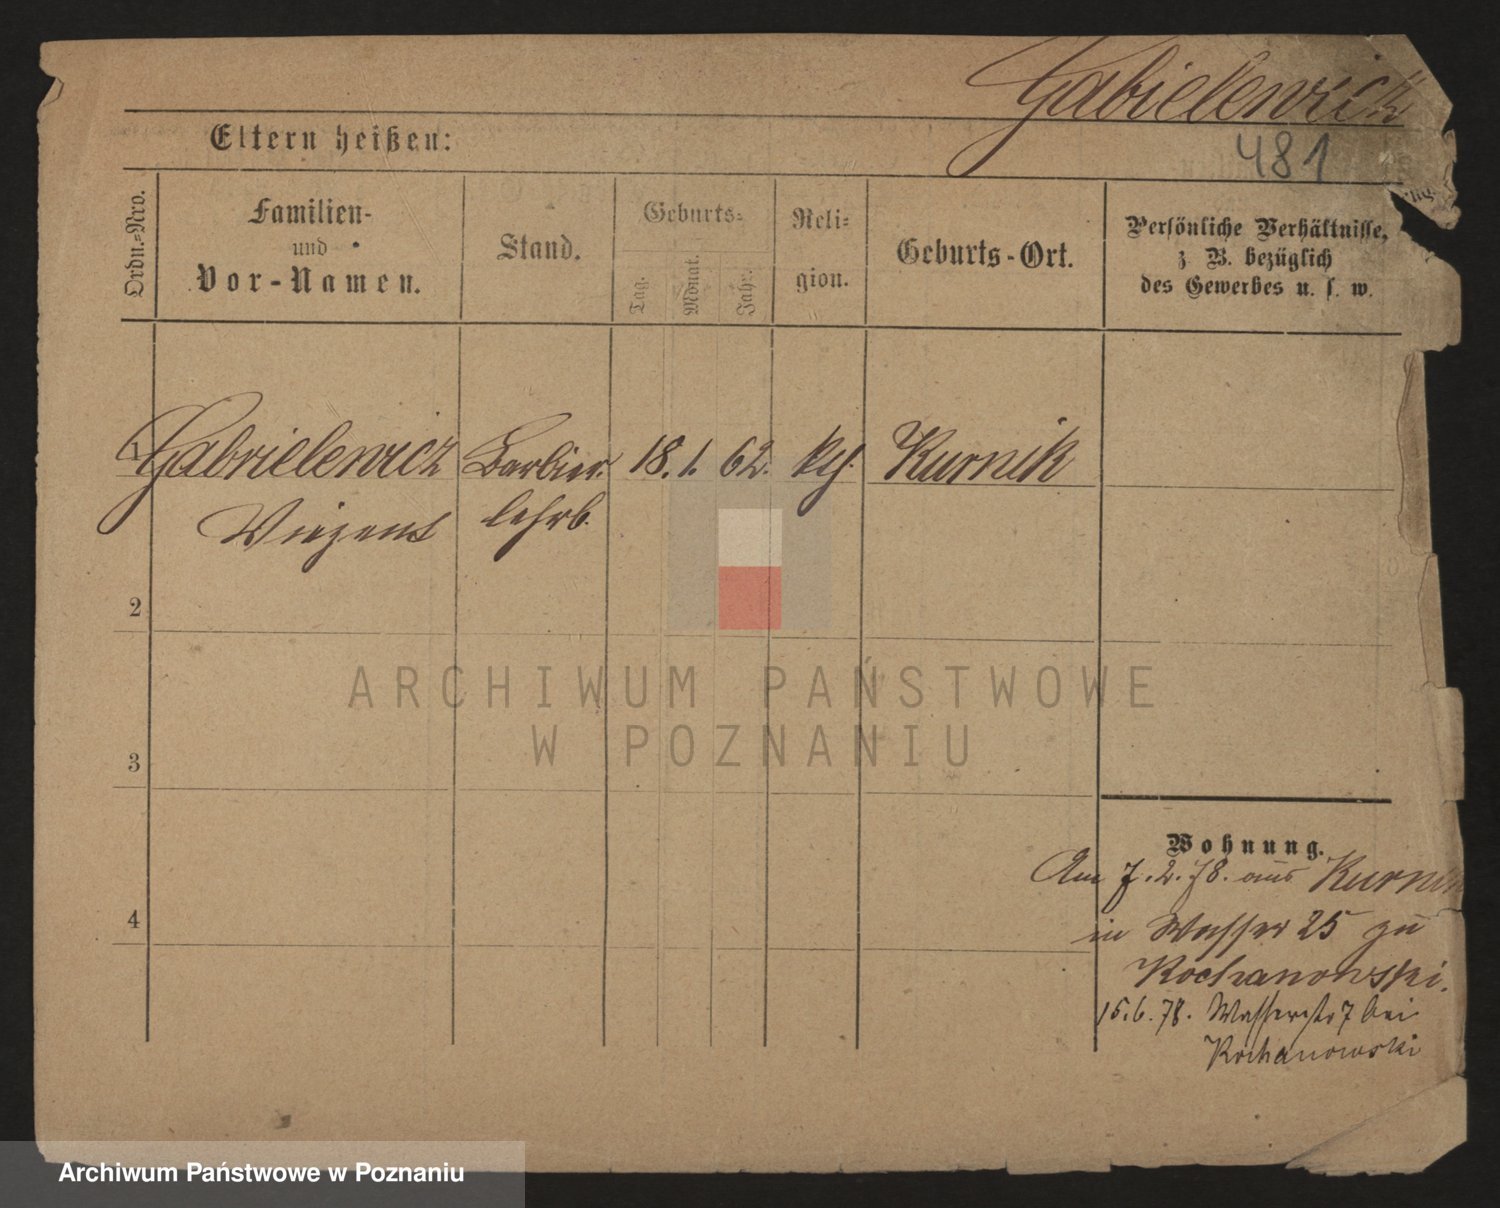 Gabielewicz
481
Eltern heißen:
Ordn.=Nro.
Familien-
und
Vor-Namen.
Stand.
Geburts=
Tag.
Monat.
Jahr.
Reli=
gion.
Geburts-Ort.
Persönliche Verhältnisse,
z. B. bezüglich
des Gewerbes u. s. w.
1 Gabrielewicz Barbier 18. 1. 62. kth. Kurnik
Vinzent lehrb.
2
3
4
Wohnung.
Am 7.2.78. aus Kurnik
in Wasser 25 zu
Kochanowski.
15.6.78. Wasserstr 7 bei
Kochanowski
ARCHIWUM PAŃSTWOWE
W POZNANIU
Archiwum Państwowe w Poznaniu